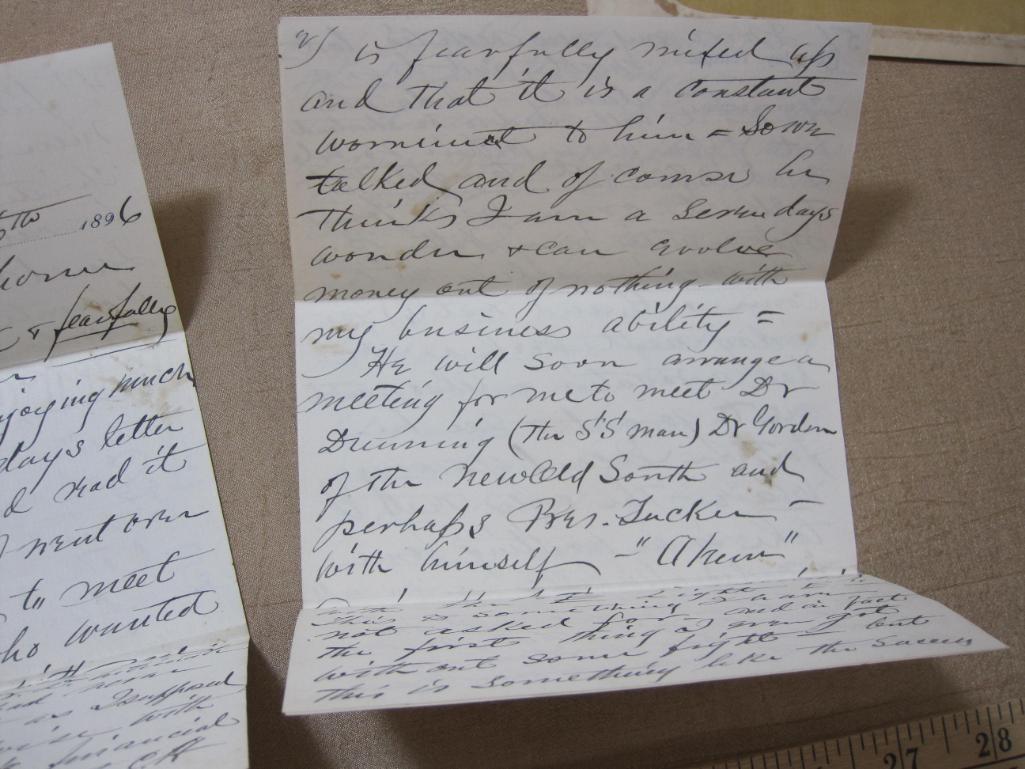 5th 1896
home
& fearfully
enjoying much
days letter
read it
I went over
to meet
who wanted
as I supposed
with
financial
2/ is fearfully mixed up
and that it is a constant
worriment to him = So we
talked and of course he
thinks I am a seven days
wonder & can evolve
money out of nothing with
my business ability =
He will soon arrange a
meeting for me to meet Dr
Dunning (the S'S' man) Dr Gordon
of the New Old South and
perhaps Pres. Tucker -
with himself - "Ahem"
This is something I have
not asked for and in fact
the first thing I ever got
without some fight - but
this is something like the
27 28